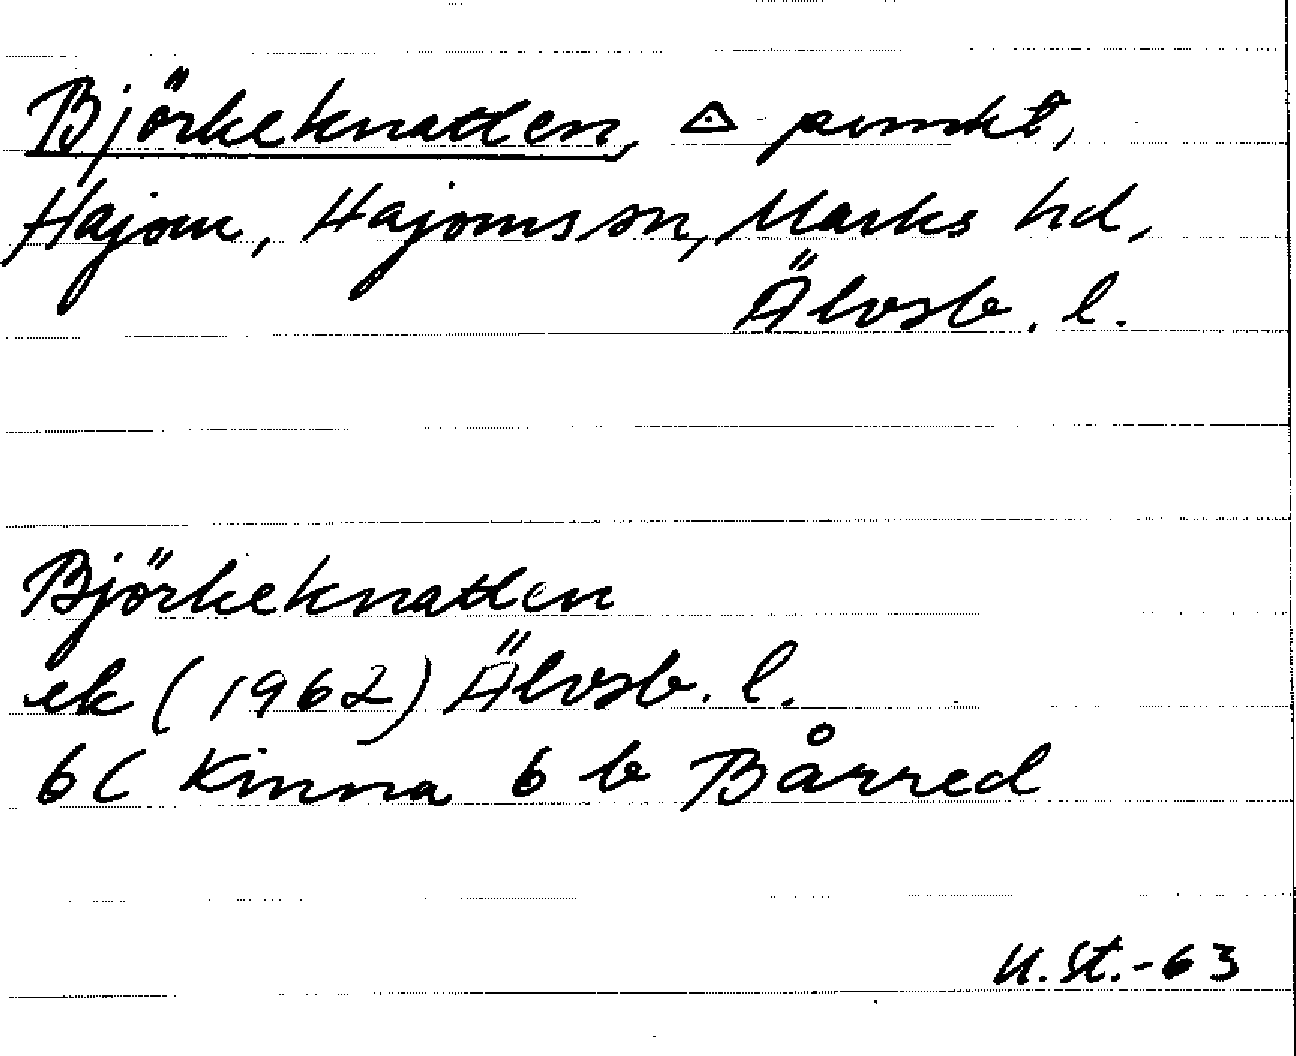 Björkeknatten, △ punkt,
Hajom, Hajoms sn, Marks hd,
Älvsb. l.
Björkeknatten
ek (1962) Älvsb. l.
6C Kinna 6 b Bårred
U.St.-63